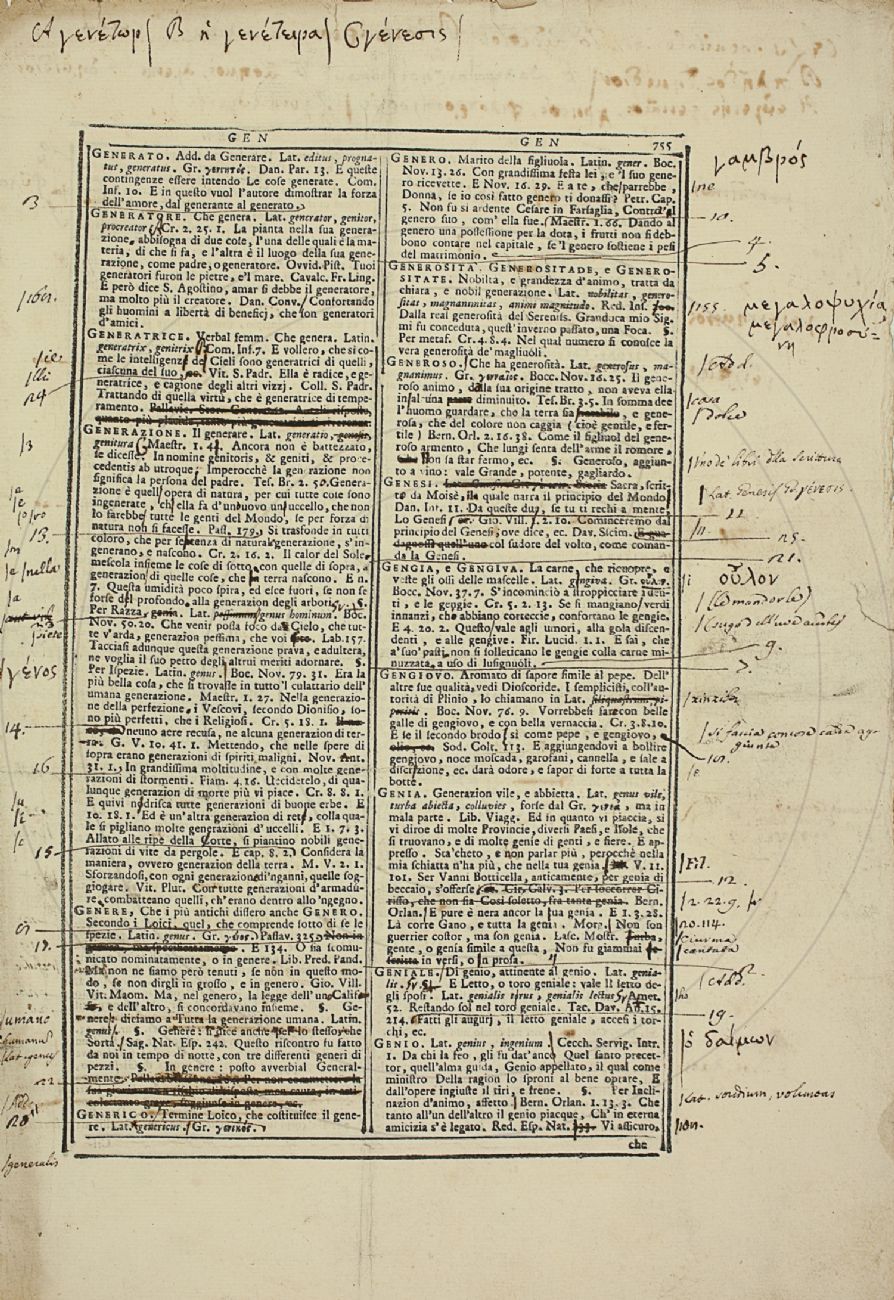 A γενέτωρ/ B ἡ γενέτειρα/ C γένεσις/
GEN
GEN 755
GENERATO. Add. da Generare. Lat. editus, progna-
tus, generatus. Gr. Dan. Par. 13. E queste
contingenze essere intendo Le cose generate. Com.
Inf. 10. E in questo vuol l'autore dimostrar la forza
dell'amore, dal generante al generato.
GENERATORE. Che genera. Lat. generator, genitor,
procreator. Cr. 2. 25. 1. La pianta nella sua genera-
zione, abbisogna di due cose, l'una delle quali è la ma-
teria, di che si fa, e l'altra è il luogo della sua gene-
razione, come padre, o generatore. Ovvid. Pist. Tuoi
generatori furon le pietre, e'l mare. Cavalc. Fr. Ling.
E però dice S. Agostino, amar si debbe il generatore,
ma molto più il creatore. Dan. Conv. Confortando
gli huomini a libertà di benefici, che son generatori
d'amici.
GENERATRICE. Verbal femm. Che genera. Latin.
generatrix, genitrix. Com. Inf. 7. E vollero, che si co-
me le intelligenze de' Cieli sono generatrici di quelli,
ciascuna del suo, Vit. S. Padr. Ella è radice, e ge-
neratrice, e cagione degli altri vizzj. Coll. S. Padr.
Trattando di quella virtù, che è generatrice di tempe-
ramento.
GENERAZIONE. Il generare. Lat. generatio,
genitura. Maestr. 1. 44. Ancora non è battezzato,
se dicesse: In nomine genitoris, & geniti, & proce-
cedentis ab utroque; Imperocchè la generazione non
significa la persona del padre. Tes. Br. 2. 50. Genera-
zione è quell'opera di natura, per cui tutte cose sono
ingenerate, chella fa d'un uovo un uccello, che non
lo farebbe tutte le genti del Mondo, se per forza di
natura non si facesse. Pass. 179. Si trasfonde in tutti
coloro, che per semenza di natural generazione, s'in-
generano, e nascono. Cr. 2. 16. 2. Il calor del Sole
mescola insieme le cose di sotto, con quelle di sopra, a
generazion di quelle cose, che in terra nascono. E n.
7. Questa umidità poco spira, ed esce fuori, se non se
forse del profondo, alla generazion degli arbori. §.
Per Razza, Lat. genus hominum. Boc.
Nov. 50. 20. Che venir possa foco da Cielo, che tut-
te v'arda, generazion pessima, che voi Lab. 157.
Tacciasi adunque questa generazione prava, e adultera,
ne voglia il suo petto degl'altrui meriti adornare. §.
Per Ispezie. Latin. genus. Boc. Nov. 79. 31. Era la
più bella cosa, che si trovasse in tutto 'l culattario dell'
umana generazione. Maestr. 1. 27. Nella generazio-
ne della perfezione, i Vescovi, secondo Dionisio, so-
no più perfetti, che i Religiosi. Cr. 5. 18. 1.
neuno aere recusa, ne alcuna generazion di ter-
ra. G. V. 10. 41. 1. Mettendo, che nelle spere di
sopra erano generazioni di spiriti maligni. Nov. Ant.
31. 1. In grandissima moltitudine, e con molte gene-
razioni di stormenti. Fiam. 4. 16. Uccidetelo, di qua-
lunque generazion di morte più vi piace. Cr. 8. 8. 1.
E quivi nodrisca tutte generazioni di buone erbe. E
10. 18. 1. Ed è un'altra generazion di reti, colla qua-
le si pigliano molte generazioni d'uccelli. E 1. 7. 3.
Allato alle ripe della Corte, si piantino nobili gene-
razioni di vite da pergole. E cap. 8. 2. Considera la
maniera, ovvero generazion della terra. M. V. 2. 1.
Sforzandosi, con ogni generazione d'inganni, quelle sog-
giogare. Vit. Plut. Con tutte generazioni d'armadu-
re combatteano quelli, ch'erano dentro allo 'ngegno.
GENERE, Che i più antichi dissero anche GENERO.
Secondo i Loici, quel, che comprende sotto di se le
spezie. Latin. genus. Gr. γένος. Passav. 325.
E 134. O sia scomu-
nicato nominatamente, o in genere. Lib. Pred. Pand.
Ma non ne siamo però tenuti, se non in questo mo-
do, se non dirgli in grosso, e in genero. Gio. Vill.
Vit. Maom. Ma, nel genero, la legge dell'uno Califfo,
e dell'altro, si concordavano insieme. §. Ge-
nere: diciamo a Tutta la generazione umana. Latin.
genus. §. Genere: si dice anche per lo stesso, che
Sorta. Sag. Nat. Esp. 242. Questo riscontro fu fatto
da noi in tempo di notte, con tre differenti generi di
pezzi. §. In genere: posto avverbial. General-
mente.
GENERICO. Termine Loico, che costituisce il gene-
re. Lat. genericus. Gr. γενικός.
3
24
13.
γένος
14.
16
15
17.
22
20
generalis
GENERO. Marito della figliuola. Latin. gener. Boc.
Nov. 13. 26. Con grandissima festa lei, e 'l suo gene-
ro ricevette. E Nov. 16. 29. E a te, che parrebbe,
Donna, se io così fatto genero ti donassi? Petr. Cap.
5. Non fu sì ardente Cesare in Farsaglia, Contra 'l
genero suo, com'ella fue. Maestr. 1. 66. Dando al
genero una possessione per la dota, i frutti non si deb-
bono contare nel capitale, se 'l genero sostiene i pesi
del matrimonio.
GENEROSITÀ, GENEROSITADE, e GENERO-
SITATE. Nobiltà, e grandezza d'animo, tratta da
chiara, e nobil generazione. Lat. nobilitas, genero-
sitas, magnanimitas, animi magnitudo. Red. Inf.
Dalla real generosità del Sereniss. Granduca mio Sig.
mi fu conceduta, quest'inverno passato, una Foca. §.
Per metaf. Cr. 4. 8. 4. Nel qual numero si conosce la
vera generosità de' magliuoli.
GENEROSO. Che ha generosità. Lat. generosus, ma-
gnanimus. Gr. γενναῖος. Bocc. Nov. 16. 25. Il gene-
roso animo, dalla sua origine tratto, non aveva ella
in alcuna diminuito. Tes. Br. 3. 5. In somma dee
l'huomo guardare, che la terra sia e gene-
rosa, che del colore non caggia (cioè gentile, e fer-
tile) Bern. Orl. 2. 16. 38. Come il figliuol del gene-
roso armento, Che lungi senta dell'arme il romore,
Non sa star fermo, ec. §. Generoso, aggiun-
to a vino: vale Grande, potente, gagliardo.
GENESI. Sacra, scrit-
to da Moisè, il quale narra il principio del Mondo
Dan. Inf. 11. Da queste due, se tu ti rechi a mente,
Lo Genesi, Gio. Vill. 1. 2. 10. Cominceremo dal
principio del Genesi, ove dice, ec. Dav. Scism.
col sudore del volto, come coman-
da la Genesi.
GENGIA, e GENGIVA. La carne, che ricuopre, e
veste gli ossi delle mascelle. Lat. gengiva. Gr.
Bocc. Nov. 37. 7. S'incominciò a stroppicciare i den-
ti, e le gengie. Cr. 5. 2. 13. Se si mangiano verdi
innanzi, che abbiano corteccie, confortano le gengie.
E 4. 20. 2. Questo vale agli umori, alla gola discen-
denti, e alle gengive. Fir. Lucid. 1. 1. E sai, che
a' suo' pasti, non si solleticano le gengie colla carne mi-
nuzzata, a uso di lusignuoli.
GENGIOVO. Aromato di sapore simile al pepe. Dell'
altre sue qualità, vedi Dioscoride. I semplicisti, coll'au-
torità di Plinio, lo chiamano in Lat.
Boc. Nov. 76. 9. Vorrebbesi fare con belle
galle di gengiovo, e con bella vernaccia. Cr. 3. 8. 10.
E se il secondo brodo, si come pepe, e gengiovo,
Sod. Colt. 113. E aggiungendovi a bollire
gengiovo, noce moscada, garofani, cannella, e sale a
discrezione, ec. darà odore, e sapor di forte a tutta la
botte.
GENIA. Generazion vile, e abbietta. Lat. genus vile,
turba abiecta, colluvies, forse dal Gr. γενεά, ma in
mala parte. Lib. Viagg. Ed in quanto vi piaccia, si
vi diroe di molte Provincie, diversi Paesi, e Isole, che
si truovano, e di molte genie di genti, e fiere. E ap-
presso. Sta cheto, e non parlar più, perocchè nella
mia schiatta n'ha più, che nella tua genia. V. 11.
101. Ser Vanni Botticella, anticamente, per genia di
beccaio, s'offerse
Bern.
Orlan. E pure è nera ancor la sua genia. E 1. 3. 28.
Là corre Gano, e tutta la genia. Morg. Non son
guerrier costor, ma son genia. Lasc. Mostr.
gente, o genia simile a questa, Non fu giammai
in versi, o in prosa.
GENIALE. Di genio, attinente al genio. Lat. genia-
lis. E Letto, o toro geniale: vale Il letto de-
gli sposi. Lat. genialis torus, genialis lectus. Amet.
52. Restando sol nel toro geniale. Tac. Dav. An. 15.
214. Fatti gli augurj, il letto geniale, accesi i tor-
chi, ec.
GENIO. Lat. genius, ingenium. Cecch. Servig. Intr.
1. Da chi la feo, gli fu dat'anco Quel santo precet-
tor, quell'alma guida, Genio appellato, il qual come
ministro Della ragion lo sproni al bene oprare, E
dall'opere ingiuste il tiri, e frene. §. Per Incli-
nazion d'animo, affetto. Bern. Orlan. 1. 13. 3. Che
tanto all'un dell'altro il genio piacque, Ch'in eterna
amicizia s'è legato. Red. Esp. Nat. Vi assicuro,
che
γαμβρός
10.
4.
5.
155.
μεγαλοψυχία
μεγαλοφροσύ-
νη
dolce
Lat. Genesis Gr. γένεσις.
11
25.
21.
οὖλον
(le mandorle)
9.
7.
zinziber
10.
12.
2. 22. 9.
20. 114.
19.
ὁ δαίμων
Lat. studium, voluntas